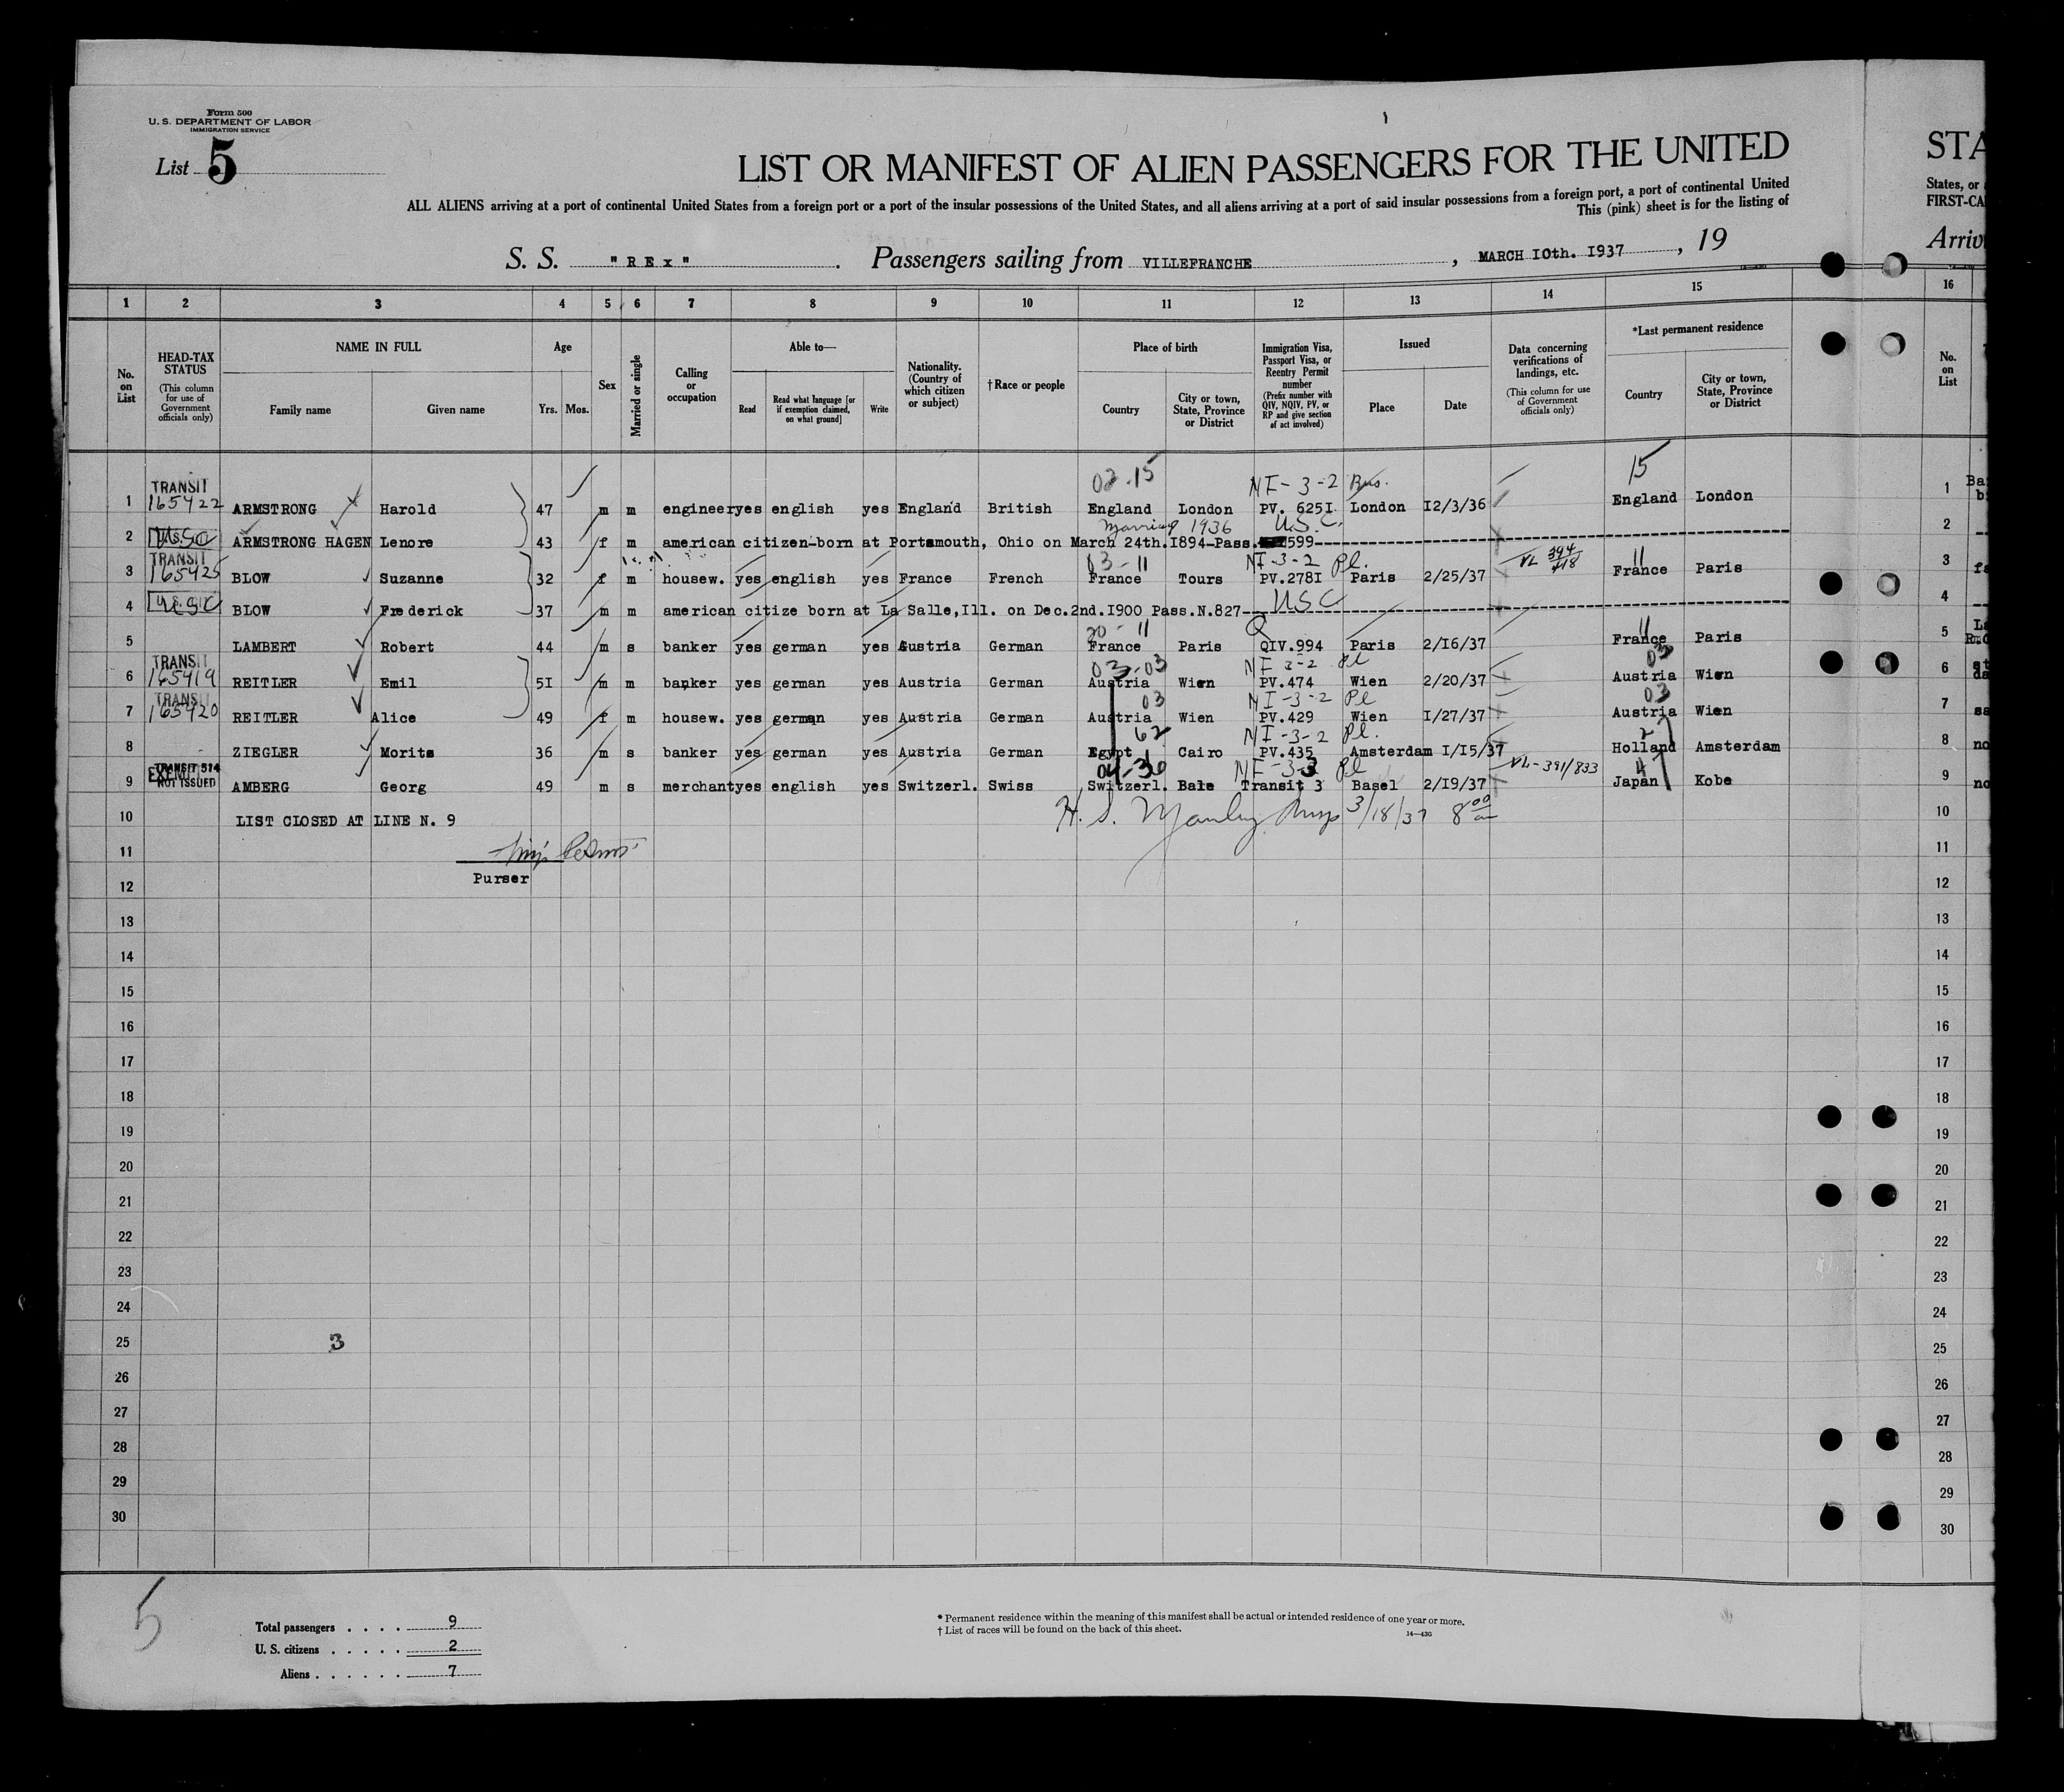 Form 500
U. S. DEPARTMENT OF LABOR
IMMIGRATION SERVICE
List 5
LIST OR MANIFEST OF ALIEN PASSENGERS FOR THE UNITED
STA
ALL ALIENS arriving at a port of continental United States from a foreign port or a port of the insular possessions of the United States, and all aliens arriving at a port of said insular possessions from a foreign port, a port of continental United
States, or
This (pink) sheet is for the listing of
FIRST-CA
S. S. "REx". Passengers sailing from VILLEFRANCHE, MARCH IOth. I937, 19
Arriv
1 2 3 4 5 6 7 8 9 10 11 12 13 14 15 16
No. on List
HEAD-TAX STATUS
(This column for use of Government officials only)
NAME IN FULL
Family name Given name
Age
Yrs. Mos.
Sex
Married or single
Calling or occupation
Able to—
Read
Read what language [or if exemption claimed, on what ground]
Write
Nationality. (Country of which citizen or subject)
†Race or people
Place of birth
Country
City or town, State, Province or District
Immigration Visa, Passport Visa, or Reentry Permit number
(Prefix number with QIV, NQIV, PV, or RP and give section of act involved)
Issued
Place Date
Data concerning verifications of landings, etc.
(This column for use of Government officials only)
*Last permanent residence
Country
City or town, State, Province or District
No. on List
02-15 NI-3-2 Bus. 15
1 TRANSIT 165422 ARMSTRONG Harold 47 m m engineer yes english yes England British England London PV. 625I London I2/3/36 England London 1
Married 1936 U.S.C.
2 U.S.C ARMSTRONG HAGEN Lenore 43 f m american citizen-born at Portsmouth, Ohio on March 24th.I894-Pass. 599 2
03-11 NI-3-2 Pl. VL 394/418 11
3 TRANSIT 165425 BLOW Suzanne 32 f m housew. yes english yes France French France Tours PV.278I Paris 2/25/37 France Paris 3
USC
4 U.S.C BLOW Frederick 37 m m american citize born at La Salle,Ill. on Dec.2nd.I900 Pass.N.827 4
20-11 Q 11
5 LAMBERT Robert 44 m s banker yes german yes Austria German France Paris QIV.994 Paris 2/16/37 France Paris 5
03-03 NI 3-2 Pl 03
6 TRANSIT 165419 REITLER Emil 5I m m banker yes german yes Austria German Austria Wien PV.474 Wien 2/20/37 Austria Wien 6
03 NI-3-2 Pl 03
7 TRANSIT 165420 REITLER Alice 49 f m housew. yes german yes Austria German Austria Wien PV.429 Wien I/27/37 Austria Wien 7
62 NI-3-2 Pl.
8 ZIEGLER Morits 36 m s banker yes german yes Austria German Egypt Cairo PV.435 Amsterdam I/I5/37 Holland Amsterdam 8 no
04-36 NI-3-3 Pl VL-391/833
9 TRANSIT 514 NOT ISSUED AMBERG Georg 49 m s merchant yes english yes Switzerl. Swiss Switzerl. Bale Transit 3 Basel 2/19/37 Japan Kobe 9 no
10 LIST CLOSED AT LINE N. 9 H. S. Manley Insp 3/18/37 8 00 am 10
11 11
Purser
12 12
13 13
14 14
15 15
16 16
17 17
18 18
19 19
20 20
21 21
22 22
23 23
24 24
25 3 25
26 26
27 27
28 28
29 29
30 30
5
Total passengers . . . . 9
U. S. citizens . . . . . 2
Aliens . . . . . . 7
* Permanent residence within the meaning of this manifest shall be actual or intended residence of one year or more.
† List of races will be found on the back of this sheet.
14—430